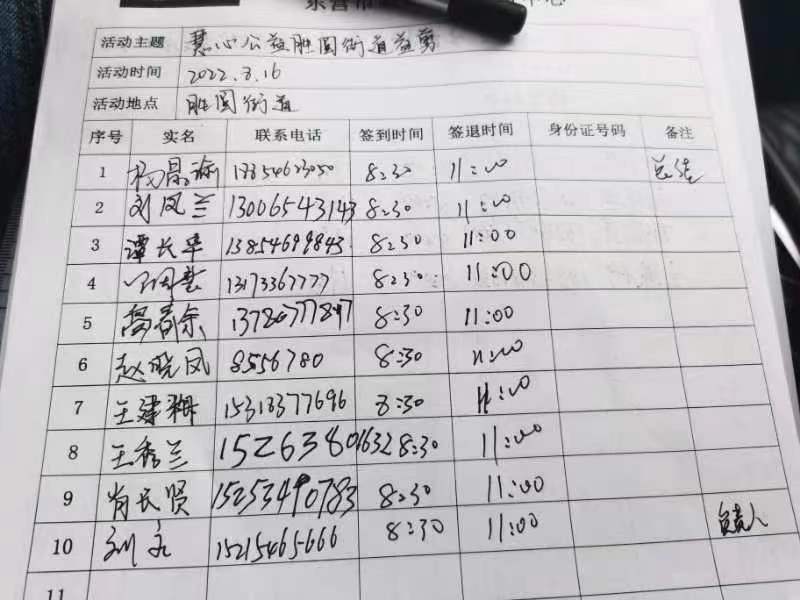 东营市
中心
活动主题 慧心公益胜园街道益剪
活动时间 2022.8.16
活动地点 胜园街道
序号 实名 联系电话 签到时间 签退时间 身份证号码 备注
1 8:30 11:00
2 刘凤兰 13006543143 8:30 11:00
3 谭长华 13854699843 8:30 11:00
4 13173367777 8:30 11:00
5 8:30 11:00
6 赵晓凤 8556780 8:30 11:00
7 15318377696 8:30 11:00
8 王秀兰 15263801632 8:30 11:00
9 肖长贤 15253490783 8:30 11:00
10 15215465666 8:30 11:00 负责人
11